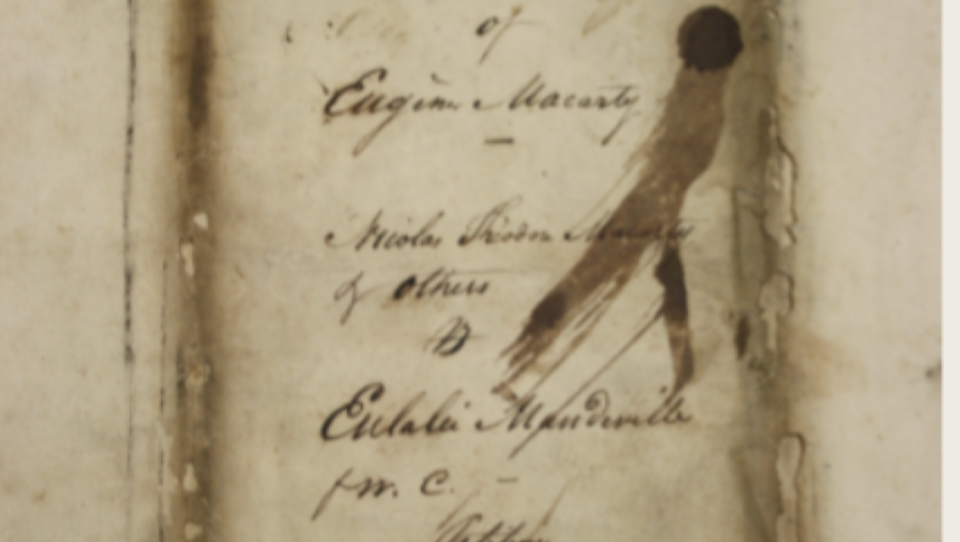 of
Eugène Macarty
Nicolas Théodore Macarty
& others
vs
Eulalie Mandeville
f. w. C. -